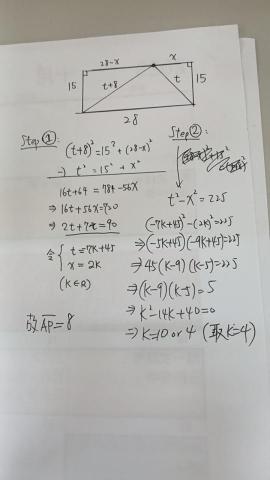 28-x
x
15
t+8
t
15
28
Step①:
(t+8)²=15²+(28-x)²
-) t²=15²+x²
16t+64=784-56x
⇒16t+56x=720
⇒2t+7x=90
令{t=-7k+45
x=2k
(k∈R)
故AP=8
Step②:
t²-x²=225
(-7k+45)²-(2k)²=225
⇒(-5k+45)(-9k+45)=225
⇒45(k-9)(k-5)=225
⇒(k-9)(k-5)=5
⇒k²-14k+40=0
⇒k=10 or 4 (取k=4)